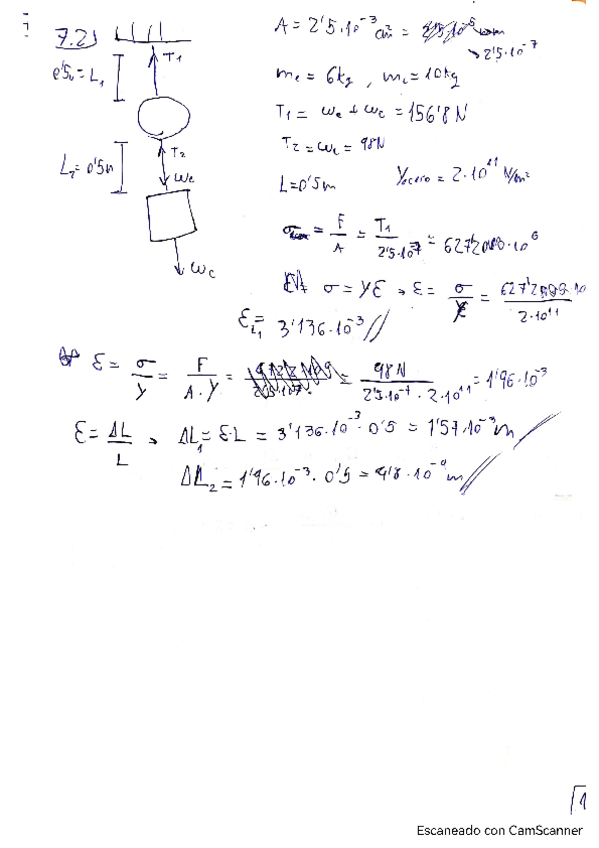 7.2)
T1
0'5m = L1
T2
We
L2 = 0'5m
Wc
A = 2'5·10^-3 cm² =
→ 2'5·10^-7
me = 6kg , mc = 10kg
T1 = We + Wc = 156'8 N
T2 = Wc = 98N
L = 0'5m
Yacero = 2·10^11 N/m²
= F/A = T1/2'5·10^-7 = 627'2·10^6
σ = Yε → ε = σ/Y = 627'2·10/2·10^11
εL1 = 3'136·10^-3 //
ε = σ/Y = F/A·Y = = 98N/2'5·10^-7 · 2·10^11 = 1'96·10^-3
ε = ΔL/L → ΔL1 = ε·L = 3'136·10^-3 · 0'5 = 1'57·10^-3 m //
ΔL2 = 1'96·10^-3 · 0'5 = 9'8·10^-4 m //
Escaneado con CamScanner